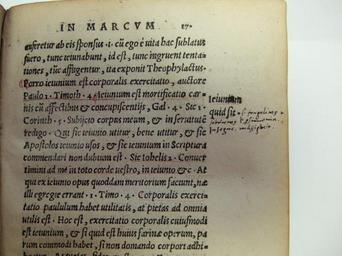 IN MARCVM 17.
auferetur ab eis sponsus .i. cũ ego è uita hac sublatus
fuero, tunc ieiunabunt, id est, tunc ingruent tentationes,
tũc affligentur, ita exponit Theophylactus.
Porro ieiunium est corporalis exercitatio, auctore
Paulo 1. Timoth. 4. Ieiunium est mortificatio carnis
cũ affectibus & concupiscentijs, Gal. 5. Sic 1.
Corinth. 9. Subijcio corpus meum, & in seruitutẽ
redigo. Qui sic ieiunio utitur, bene utitur, & sic
Apostolos ieiunio usos, & sic ieiunium in Scriptura
commendari non dubium est. Sic Iohelis 2. Conuertimini
ad me in toto corde uestro, in ieiunio & c. At
qui ex ieiunio opus quoddam meritorium faciunt, næ
illi egregie errant. 1. Timo. 4. Corporalis exercitatio
paululum habet utilitatis, at pietas ad omnia
utilis est. Hoc est, exercitatio corporalis cuiusmodi
est ieiunium, & si quid est huius farinæ operum, parum
commodi habet, si non domando corpori adhibeatur.
ieiunium
quid sit